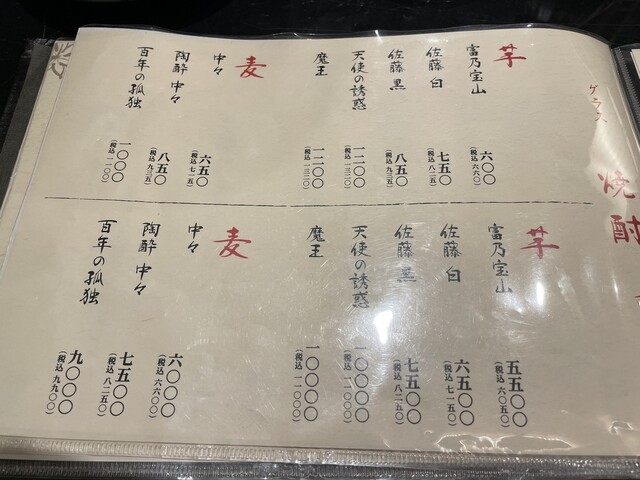 焼酎
グラス
芋
富乃宝山
六〇〇
(税込 六六〇)
佐藤 白
七五〇
(税込 八二五)
佐藤 黒
八五〇
(税込 九三五)
天使の誘惑
一二〇〇
(税込 一三二〇)
魔王
一二〇〇
(税込 一三二〇)
麦
中々
六五〇
(税込 七一五)
陶酔 中々
八五〇
(税込 九三五)
百年の孤独
一〇〇〇
(税込 一一〇〇)
芋
富乃宝山
五五〇〇
(税込 六〇五〇)
佐藤 白
六五〇〇
(税込 七一五〇)
佐藤 黒
七五〇〇
(税込 八二五〇)
天使の誘惑
一〇〇〇〇
(税込 一一〇〇〇)
魔王
一〇〇〇〇
(税込 一一〇〇〇)
麦
中々
六〇〇〇
(税込 六六〇〇)
陶酔 中々
七五〇〇
(税込 八二五〇)
百年の孤独
九〇〇〇
(税込 九九〇〇)